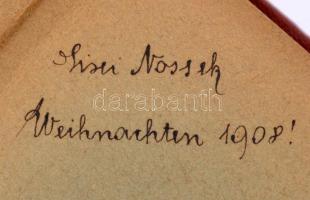 Lisei Nossek
darabanth
Weihnachten 1908!